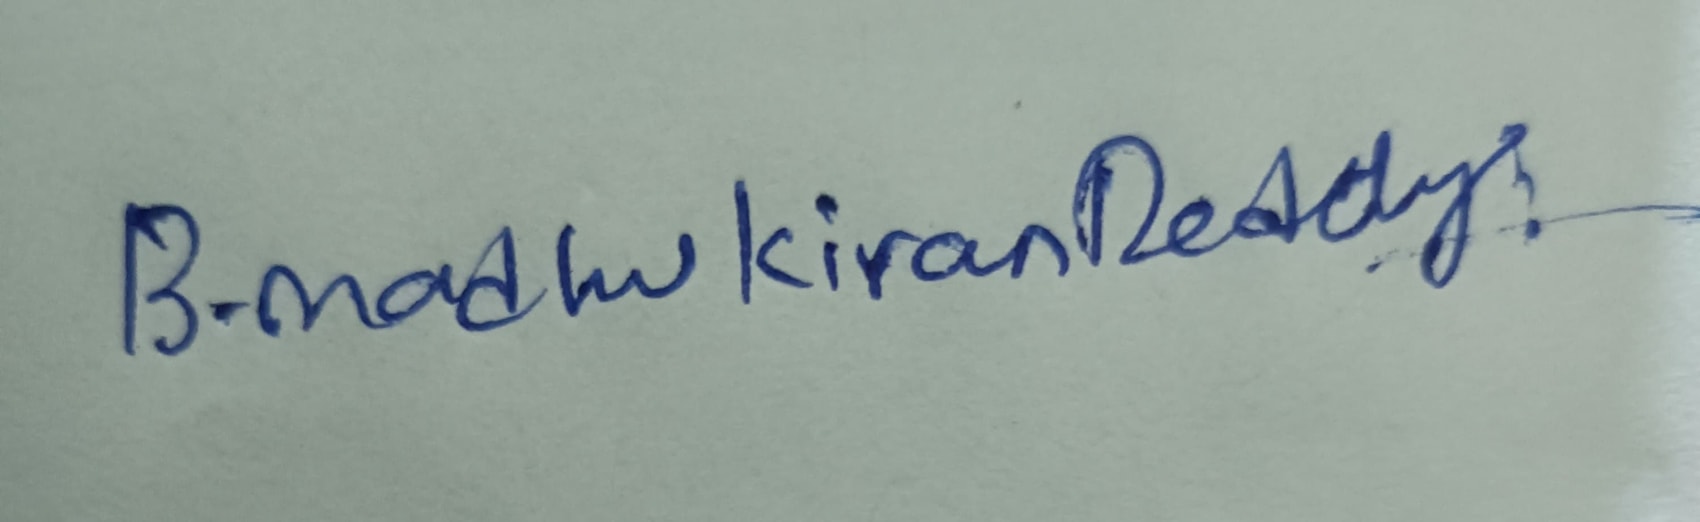 B.madhu kiran Reddy